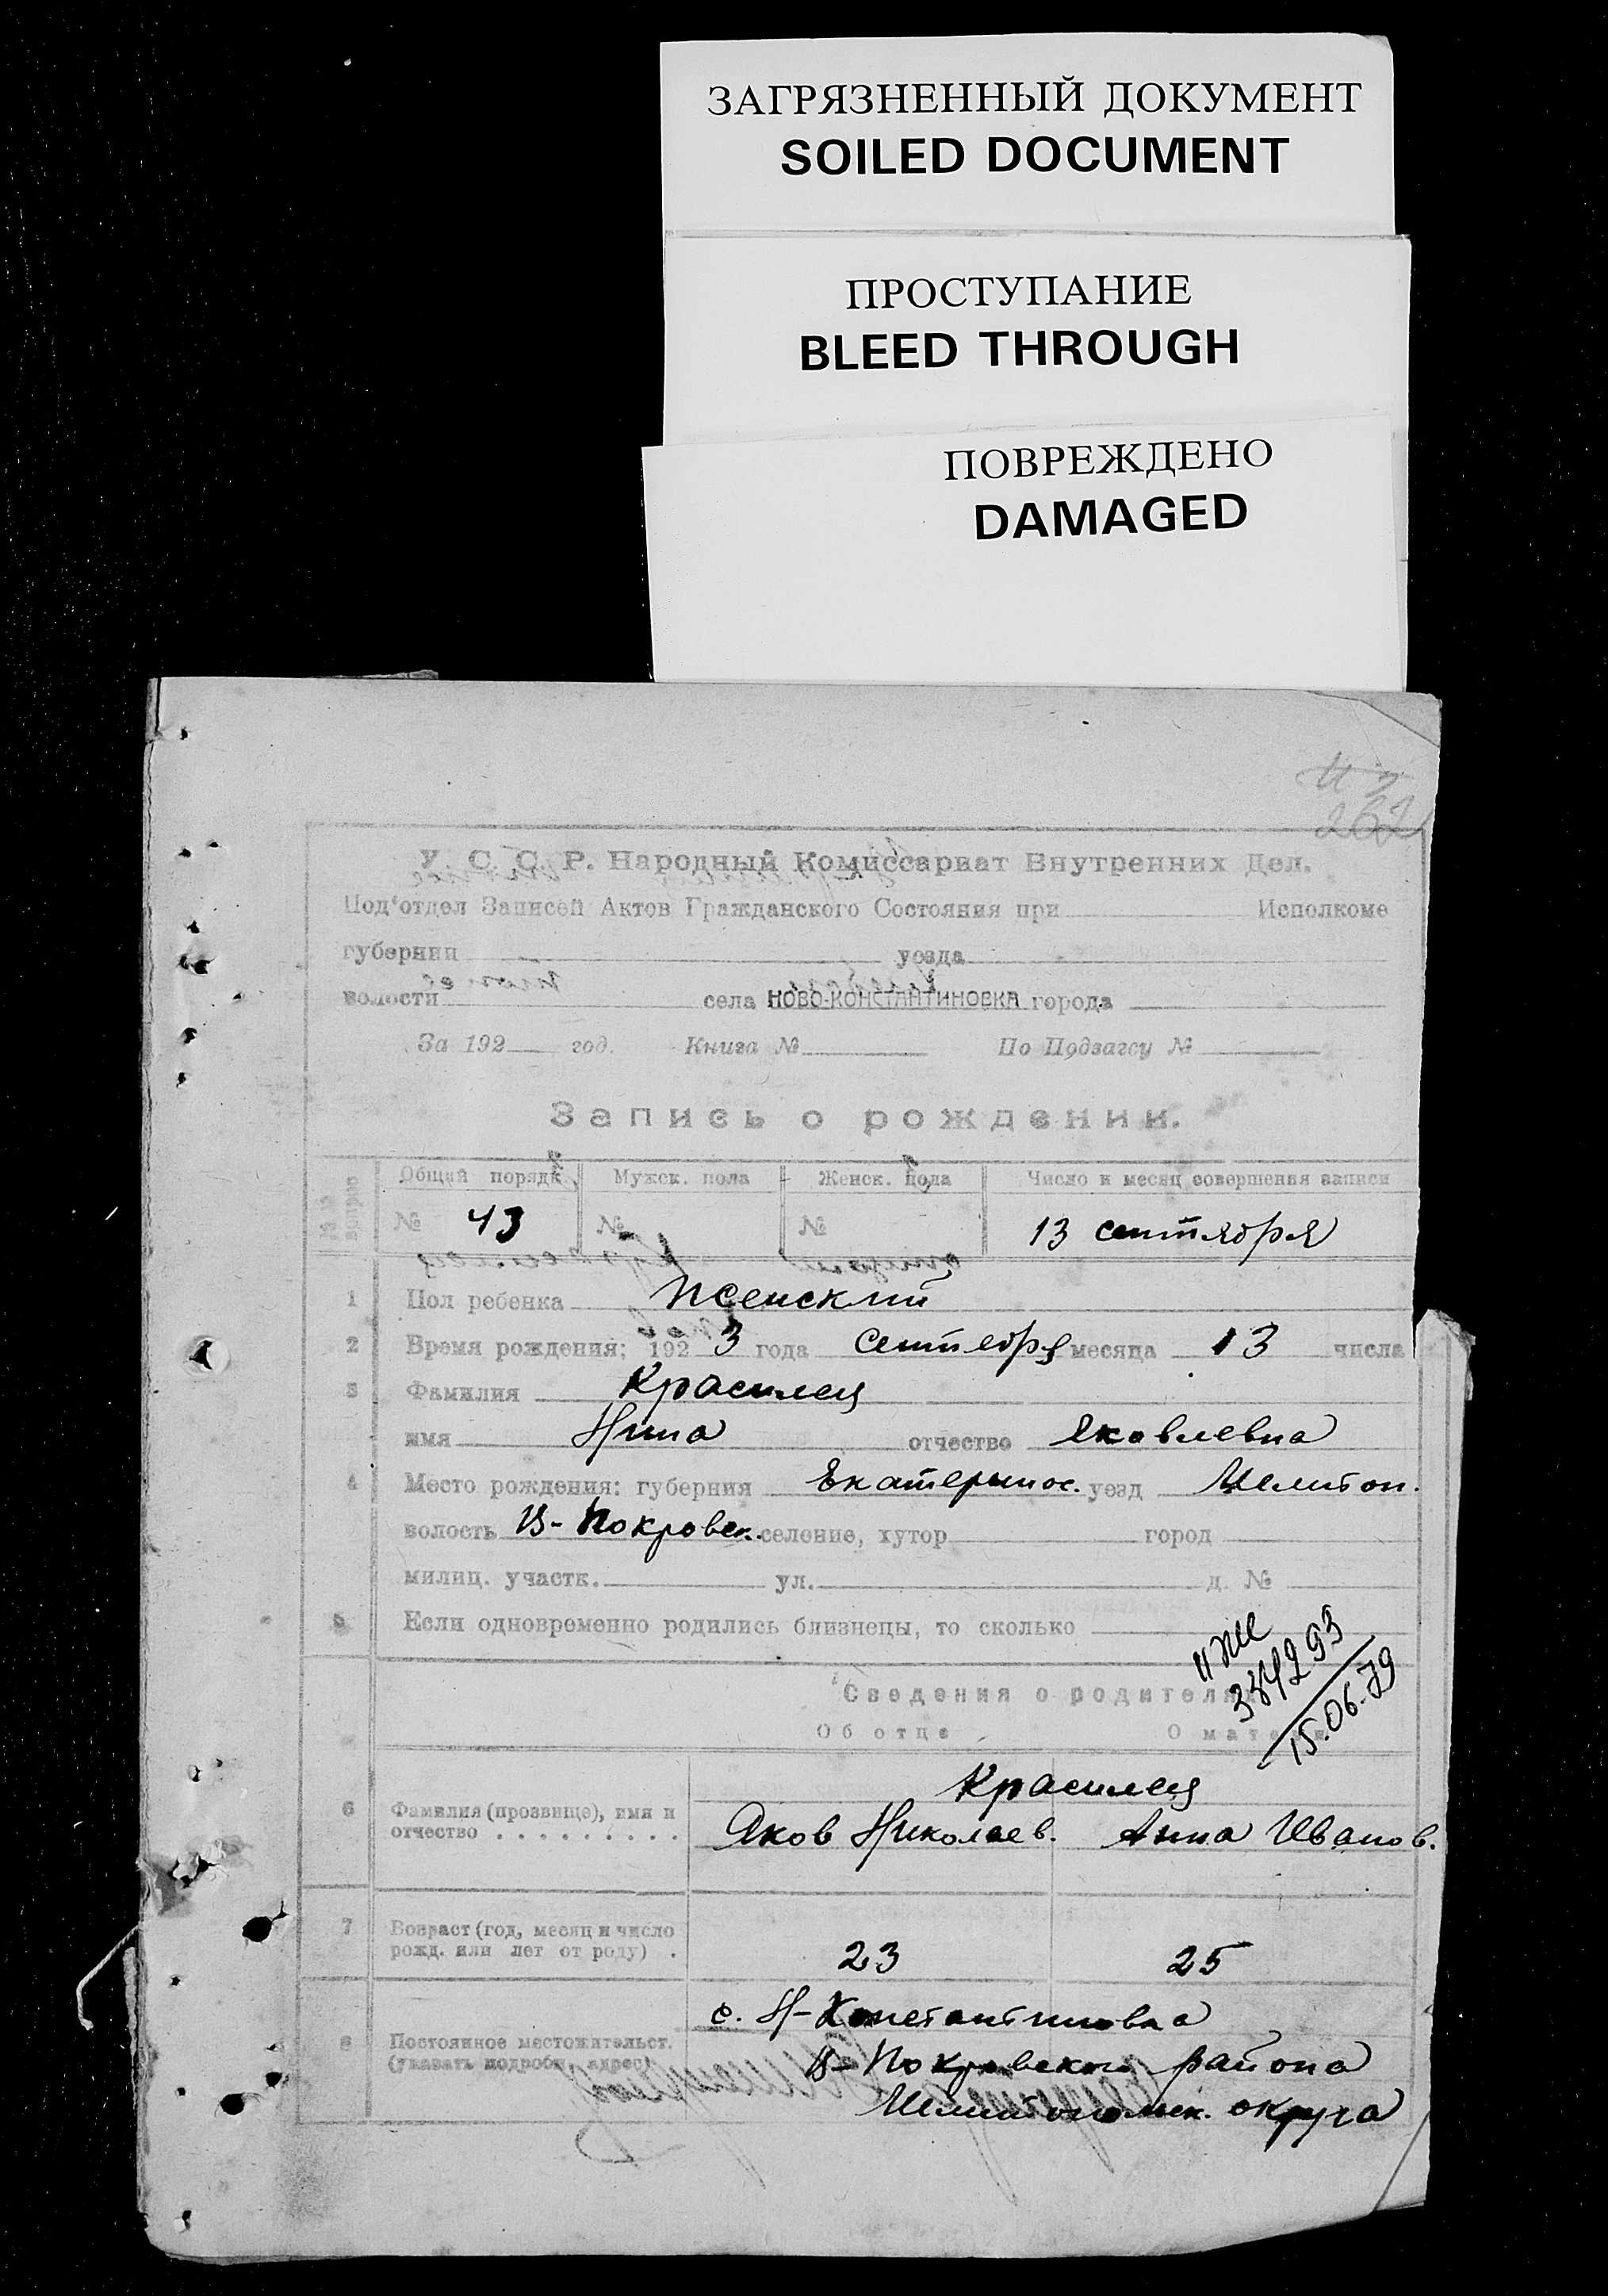 ЗАГРЯЗНЕННЫЙ ДОКУМЕНТ
SOILED DOCUMENT
ПРОСТУПАНИЕ
BLEED THROUGH
ПОВРЕЖДЕНО
DAMAGED
262
У. С. С. Р. Народный Комиссариат Внутренних Дел.
Под'отдел Записей Актов Гражданского Состояния при Исполкоме
губернии уезда
волости села НОВО-КОНСТАНТИНОВКА города
За 192 год. Книга № По Подзагсу №
Запись о рождении.
Общий порядк. Мужск. пола Женск. пола Число и месяц совершения записи
№ 43 № № 13 сентября
1 Пол ребенка Женский
2 Время рождения: 192 3 года сентебря месяца 13 числа
3 Фамилия Красилец
имя Нина отчество Яковлевна
4 Место рождения: губерния Екатеринос. уезд Мелитоп.
волость В-Покровск. селение, хутор город
милиц. участк. ул. д. №
5 Если одновременно родились близнецы, то сколько
384293
15.06.79
Сведения о родителях
Об отце О матери
Красилец
6 Фамилия (прозвище), имя и
отчество . . . . . . . . . Яков Николаев. Анна Иванов.
7 Возраст (год, месяц и число
рожд. или лет от роду) . 23 25
с. Н-Константиновка
8 Постоянное местожительст.
(указать подробн. адрес) В-Покровского района
Мелитопольск. округа